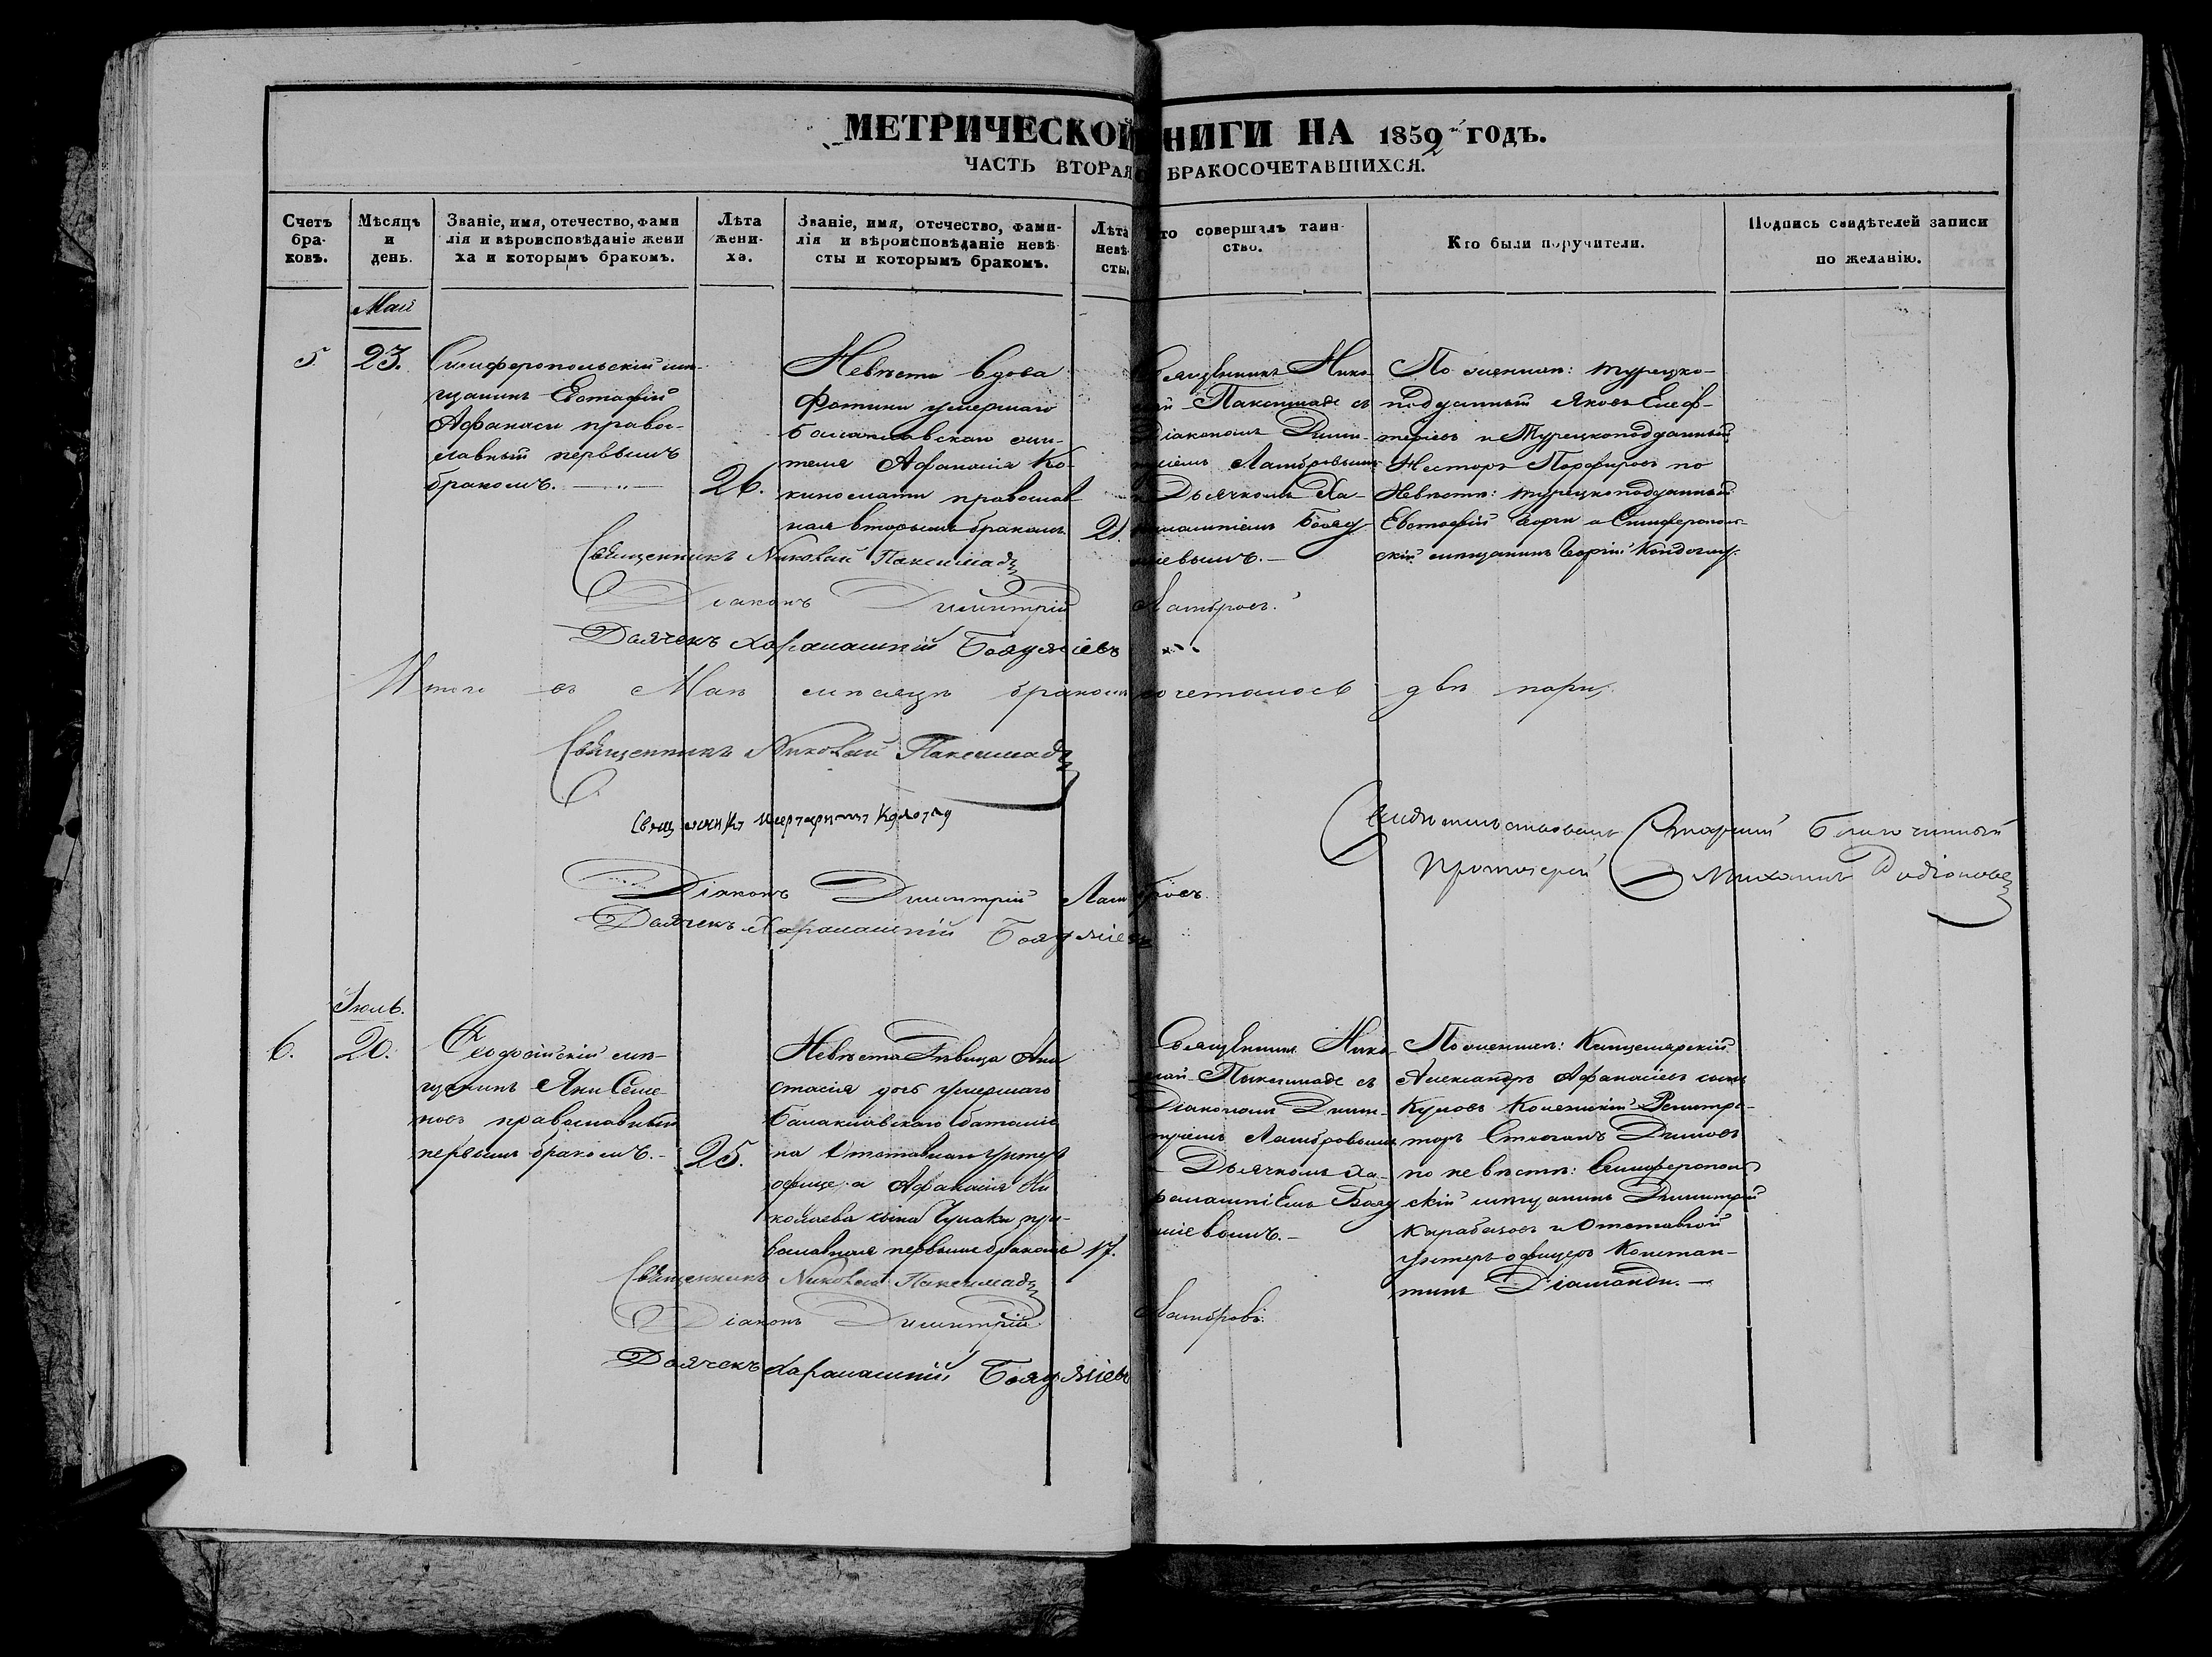 МЕТРИЧЕСКОЙ КНИГИ НА 1852й ГОДЪ.
ЧАСТЬ ВТОРАЯ О БРАКОСОЧЕТАВШИХСЯ.
Счетъ бра-ковъ.
Мѣсяцъ и день.
Званіе, имя, отечество, фами
лія и вѣроисповѣданіе жени
ха и которымъ бракомъ.
Лѣта жени-ха.
Званіе, имя, отечество, фами-
лія и вѣроисповѣданіе невѣ
сты и которымъ бракомъ.
Лѣта невѣ-сты.
то совершалъ таин-
ство.
Кто были поручители.
Подпись свидѣтелей записи
по желанію.
Май
5
23.
Симферопольскій мѣ-
щанинъ Евстафій
Афанаси право-
славный первымъ
бракомъ.
26.
Невѣста вдова
Фотини умершаго
Балаклавскаго жи-
теля Афанасія Ко-
кинолати православ
ная вторымъ бракомъ
21.
Священникъ Нико
лай Паксимаде съ
Діакономъ Дими-
тріемъ Ламбровымъ
и Дьячкомъ Ха-
ралампіемъ Бояд
жіевымъ.
По женихѣ: турецко-
подданный Яковъ Елеф-
теріевъ и Турецкоподданный
Несторъ Порфировъ по
Невѣстѣ: турецкоподданный
Евстафій Іорги и Симферополь
скій мѣщанинъ Георгій Кондоглу.
Священникъ Николай Паксимади
Діаконъ Димитрій Ламбровъ.
Дьячекъ Харалампій Бояджіевъ
Итого въ Маѣ мѣсяцѣ бракомъ сочеталось двѣ пары.
Священникъ Николай Паксимади
Діаконъ Димитрій Ламбровъ.
Дьячекъ Харалампій Бояджіевъ
Свидѣтельствовалъ Старшій Благочинный
Протоіерей Михаилъ Родіоновъ
Іюль.
6.
20.
Феодосійскій мѣ-
щанинъ Яни Семе-
новъ православный
первымъ бракомъ.
25.
Невѣста Дѣвица Ана
стасія дочь умершаго
Балаклавскаго баталіо
на Отставнаго унтеръ
офицера Афанасія Ни
колаева сына Чумаки пра-
вославная первымъ бракомъ
17.
Священникъ Нико
лай Паксимаде съ
Діакономъ Дими-
тріемъ Ламбровымъ
Дьячкомъ Ха-
ралампіемъ Бояд
жіевымъ.
По женихѣ: Канцелярскій
Александръ Афанасіевъ сынъ
Кумовъ Колежскій Регистра-
торъ Стилганъ Димовъ
по невѣстѣ: Симферополь
скій мѣщанинъ Димитрій
Карабазовъ и Отставной
унтеръ офицеръ Констан-
тинъ Діаманди.
Священникъ Николай Паксимади
Діаконъ Димитрій Ламбровъ.
Дьячекъ Харалампій Бояджіевъ